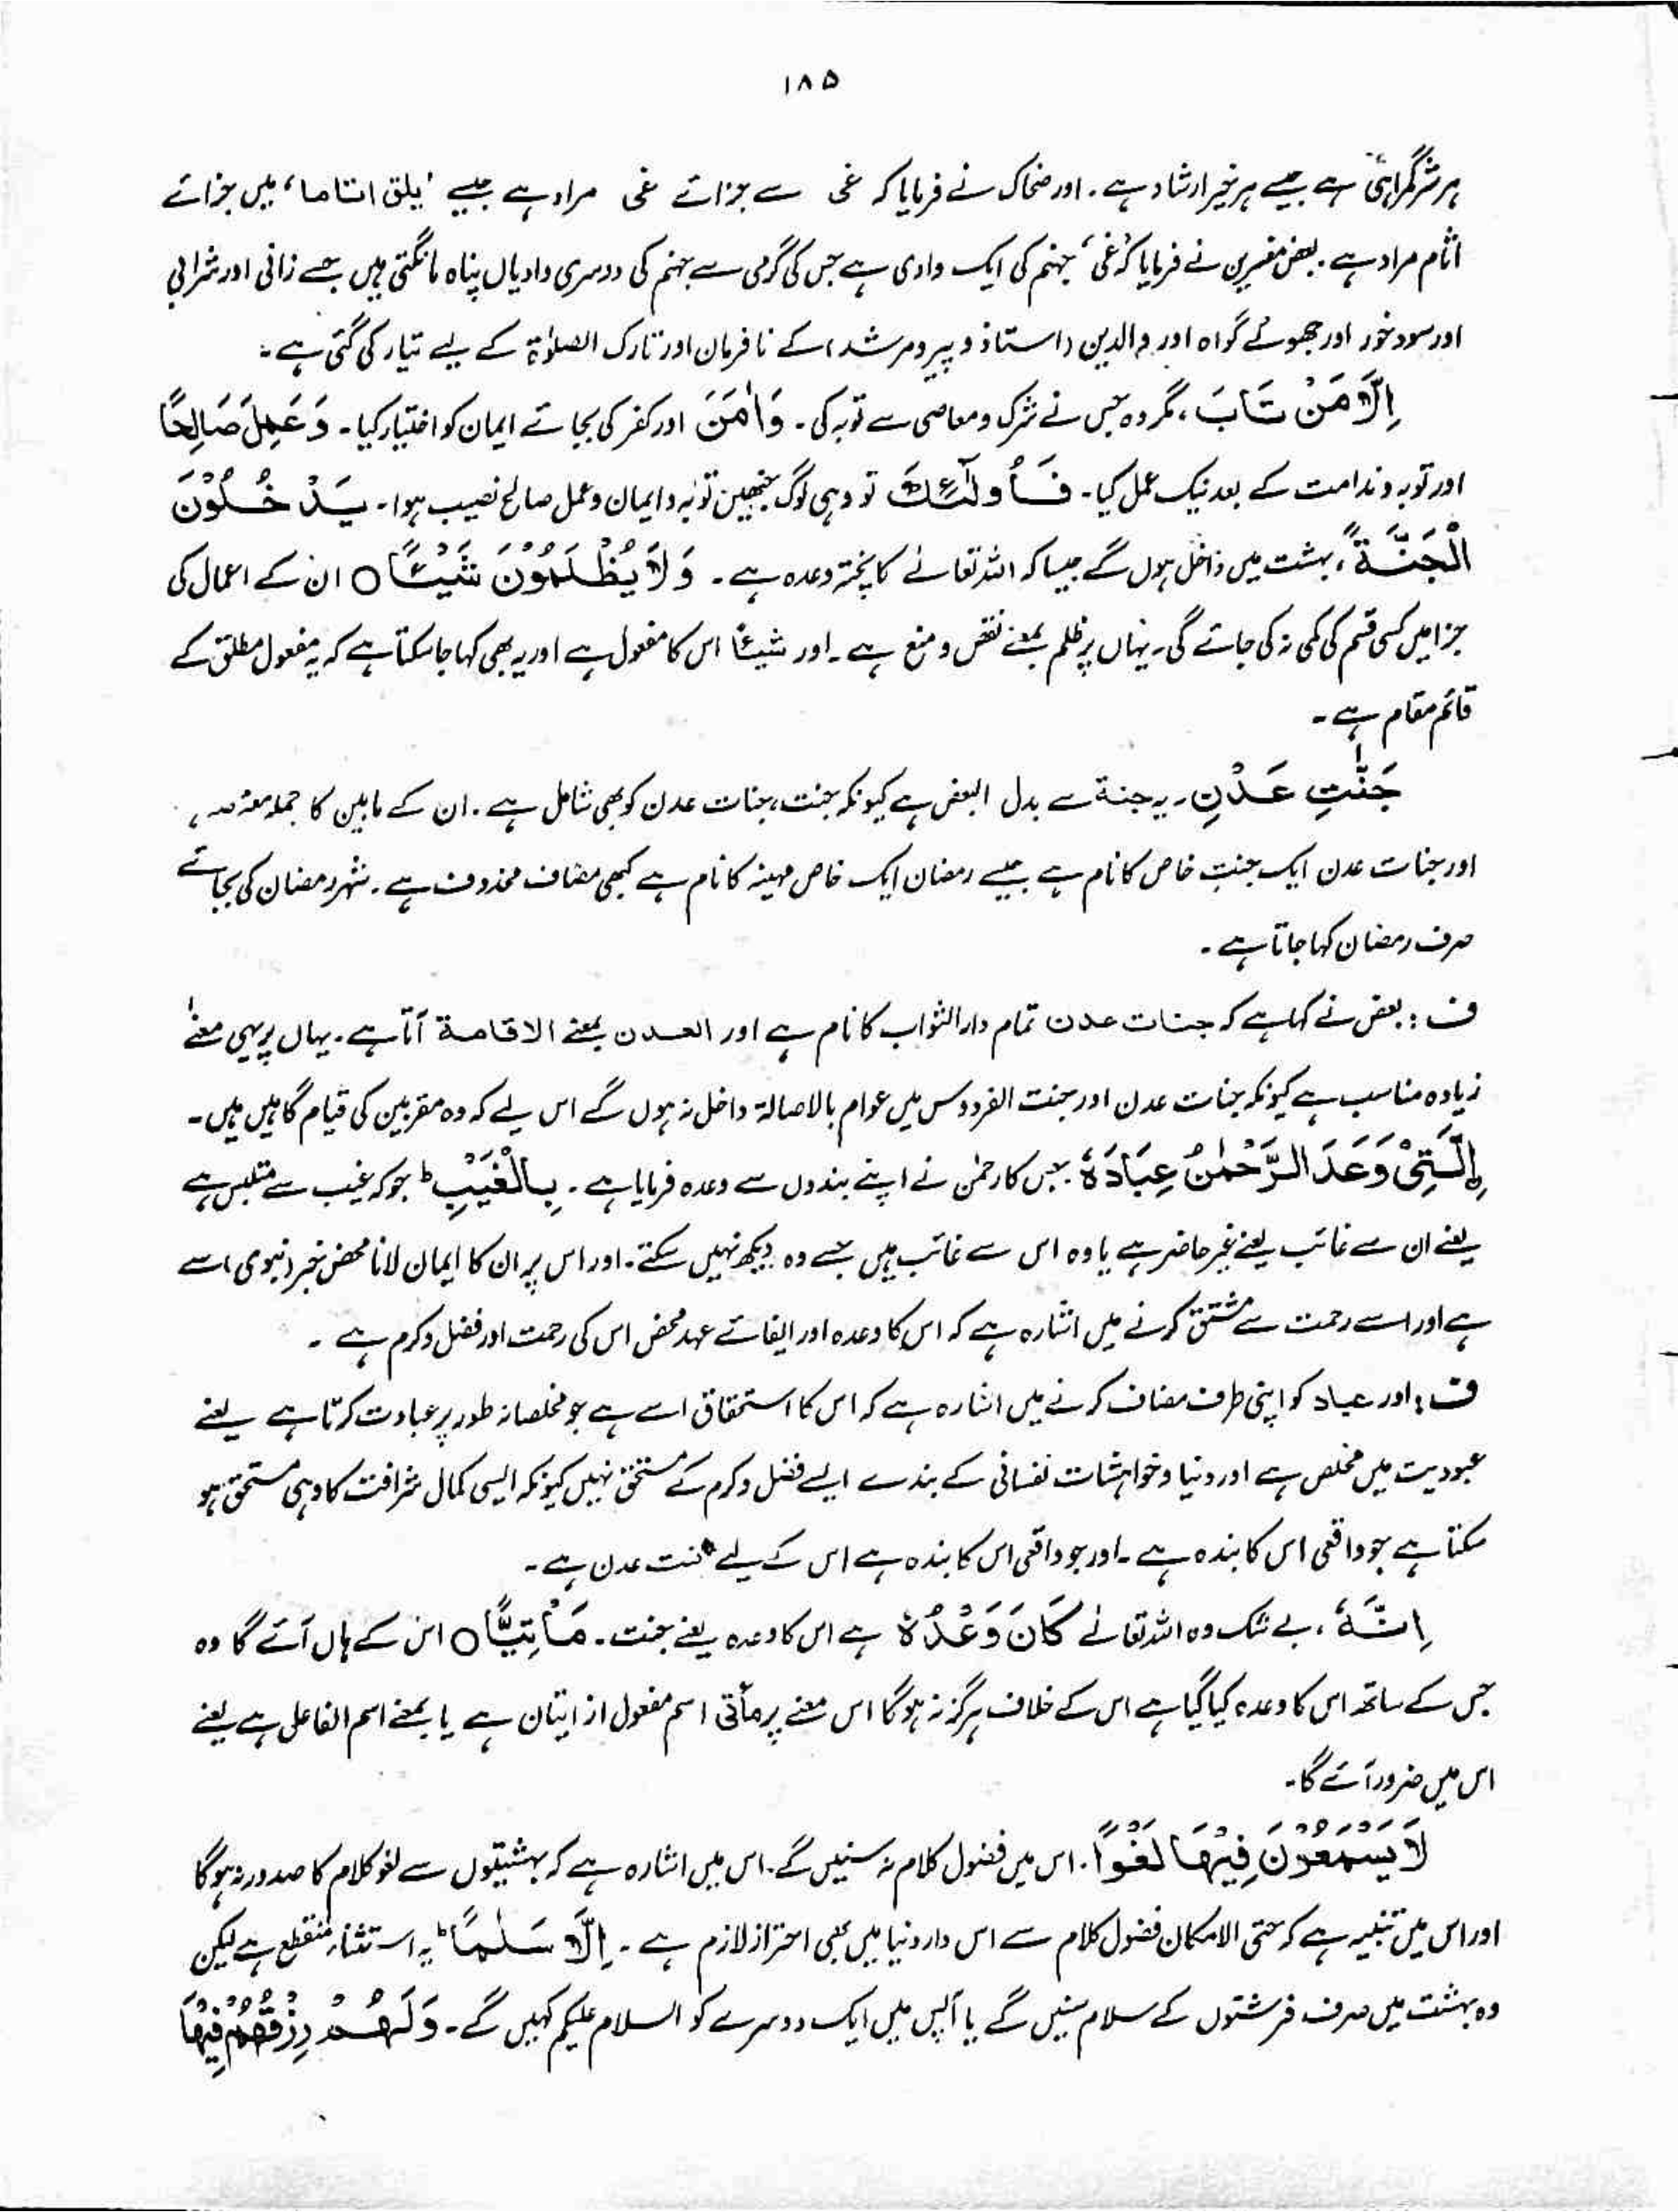 ۱۸۵
ہر شر گمراہی ہے جیسے ہر خیر ارشاد ہے۔ اور ضحاک نے فرمایا کہ غی سے جزائے غی مراد ہے جیسے 'یلق اثاما' میں جزائے
اثام مراد ہے۔ بعض مفسرین نے فرمایا کہ 'غی' جہنم کی ایک وادی ہے جس کی گرمی سے جہنم کی دوسری وادیاں پناہ مانگتی ہیں جسے زانی اور شرابی
اور سود خور اور جھوٹے گواہ اور والدین (استاذ و پیر و مرشد) کے نافرمان اور تارک الصلوٰۃ کے لیے تیار کی گئی ہے۔
اِلَّا مَنْ تَابَ، مگر وہ جس نے شرک و معاصی سے توبہ کی۔ وَاٰمَنَ اور کفر کی بجائے ایمان کو اختیار کیا۔ وَعَمِلَ صَالِحًا
اور توبہ و ندامت کے بعد نیک عمل کیا۔ فَاُولٰٓئِكَ تو وہی لوگ جنھیں توبہ و ایمان و عمل صالح نصیب ہوا۔ یَدْخُلُوْنَ
الْجَنَّةَ، بہشت میں داخل ہوں گے جیسا کہ اللہ تعالےٰ کا پختہ وعدہ ہے۔ وَلَا یُظْلَمُوْنَ شَیْئًا ○ ان کے اعمال کی
جزا میں کسی قسم کی کمی نہ کی جائے گی۔ یہاں پر ظلم بمعنے نقص و منع ہے۔ اور شیئًا اس کا مفعول ہے اور یہ بھی کہا جاسکتا ہے کہ یہ مفعول مطلق کے
قائم مقام ہے۔
جَنّٰتِ عَدْنِ۔ یہ جنۃ سے بدل البعض ہے کیونکہ جنت، جنات عدن کو بھی شامل ہے۔ ان کے مابین کا جملہ معترضہ،
اور جنات عدن ایک جنتِ خاص کا نام ہے جیسے رمضان ایک خاص مہینہ کا نام ہے کبھی مضاف محذوف ہے۔ شہر رمضان کی بجائے
صرف رمضان کہا جاتا ہے۔
ف: بعض نے کہا ہے کہ جنات عدن تمام دارالثواب کا نام ہے اور العدن بمعنے الاقامة آتا ہے۔ یہاں پر یہی معنےٰ
زیادہ مناسب ہے کیونکہ جنات عدن اور جنت الفردوس میں عوام بالاصالۃ داخل نہ ہوں گے اس لیے کہ وہ مقربین کی قیام گاہیں ہیں۔
اِلَّتِیْ وَعَدَ الرَّحْمٰنُ عِبَادَهٗ۔ جس کا رحمٰن نے اپنے بندوں سے وعدہ فرمایا ہے۔ بِالْغَیْبِ ط جو کہ غیب سے متلبس ہے
یعنے ان سے غائب یعنے غیر حاضر ہے یا وہ اس سے غائب ہیں جسے وہ دیکھ نہیں سکتے۔ اور اس پر ان کا ایمان لانا محض خبر (نبوی) سے
ہے اور اسے رحمت سے مشتق کرنے میں اشارہ ہے کہ اس کا وعدہ اور ایفائے عہد محض اس کی رحمت اور فضل و کرم ہے۔
ف: اور عباد کو اپنی طرف مضاف کرنے میں اشارہ ہے کہ اس کا استحقاق اسے ہے جو مخلصانہ طور پر عبادت کرتا ہے یعنے
عبودیت میں مخلص ہے اور دنیا و خواہشات نفسانی کے بندے ایسے فضل و کرم کے مستحق نہیں کیونکہ ایسی کمال شرافت کا وہی مستحق ہو
سکتا ہے جو واقعی اس کا بندہ ہے۔ اور جو واقعی اس کا بندہ ہے اس کے لیے جنت عدن ہے۔
اِنَّهٗ، بے شک وہ اللہ تعالےٰ كَانَ وَعْدُهٗ ہے اس کا وعدہ یعنے جنت۔ مَاْتِیًّا ○ اس کے ہاں آئے گا وہ
جس کے ساتھ اس کا وعدہ کیا گیا ہے اس کے خلاف ہرگز نہ ہوگا اس معنے پر مأتی اسم مفعول از اتیان ہے یا بمعنے اسم الفاعل ہے یعنے
اس میں ضرور آئے گا۔
لَا یَسْمَعُوْنَ فِیْهَا لَغْوًا۔ اس میں فضول کلام نہ سنیں گے۔ اس میں اشارہ ہے کہ بہشتیوں سے لغو کلام کا صدور نہ ہوگا
اور اس میں تنبیہ ہے کہ حتی الامکان فضول کلام سے اس دار دنیا میں بھی احتراز لازم ہے۔ اِلَّا سَلٰمًا ط یہ استثناء منقطع ہے لیکن
وہ بہشت میں صرف فرشتوں کے سلام سنیں گے یا آپس میں ایک دوسرے کو السلام علیکم کہیں گے۔ وَلَهُمْ رِزْقُهُمْ فِیْهَا